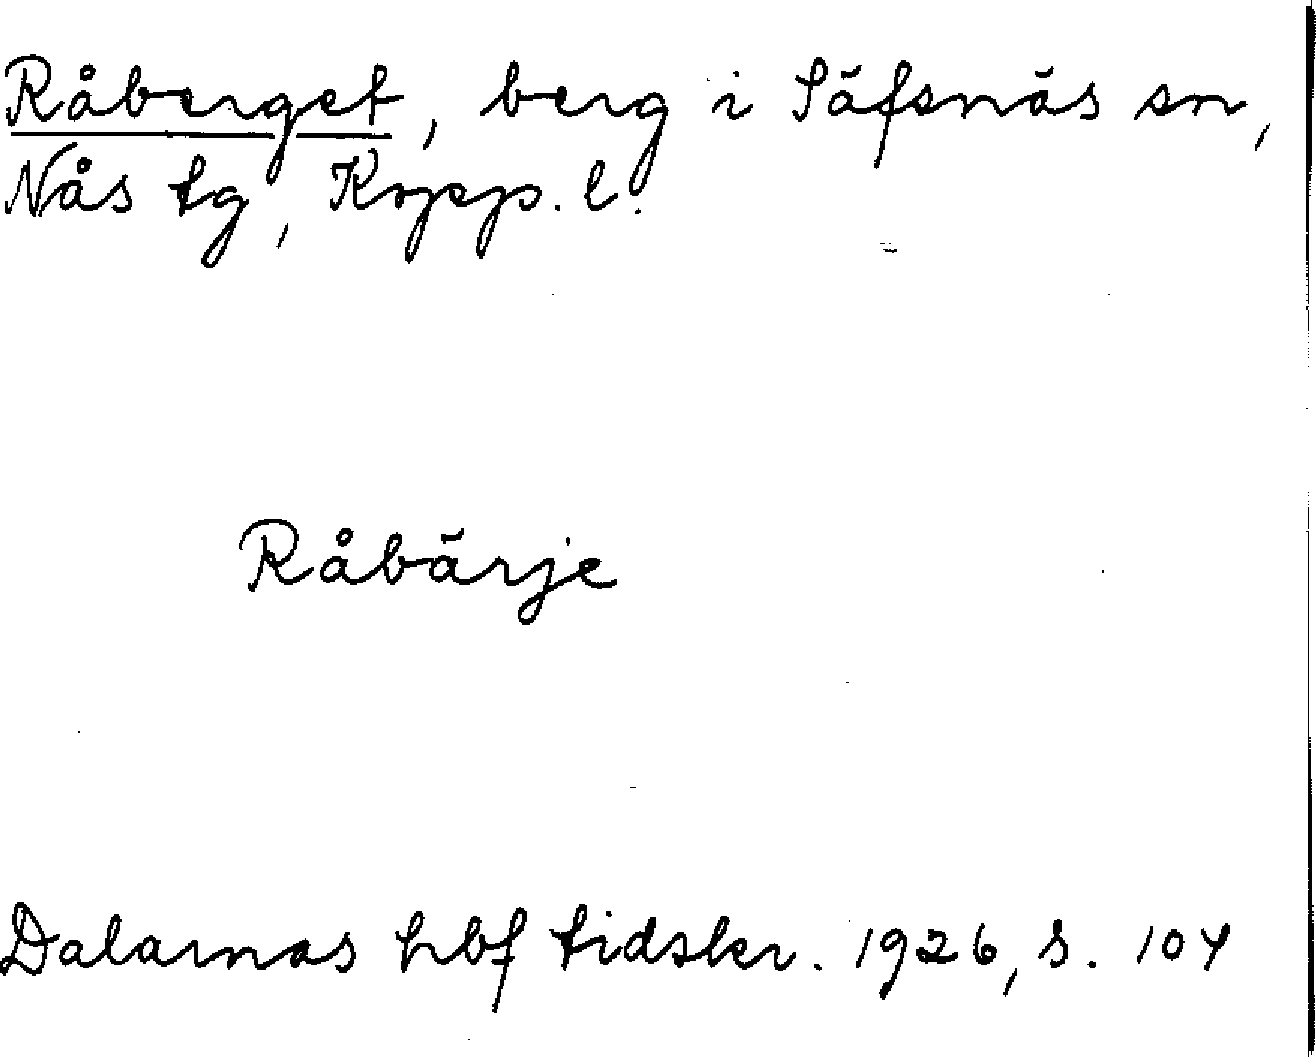 Råberget, berg i Säfsnäs sn,
Nås tg, Kopp. l.
Råbärje
Dalarnas hbf tidskr. 1926, s. 104